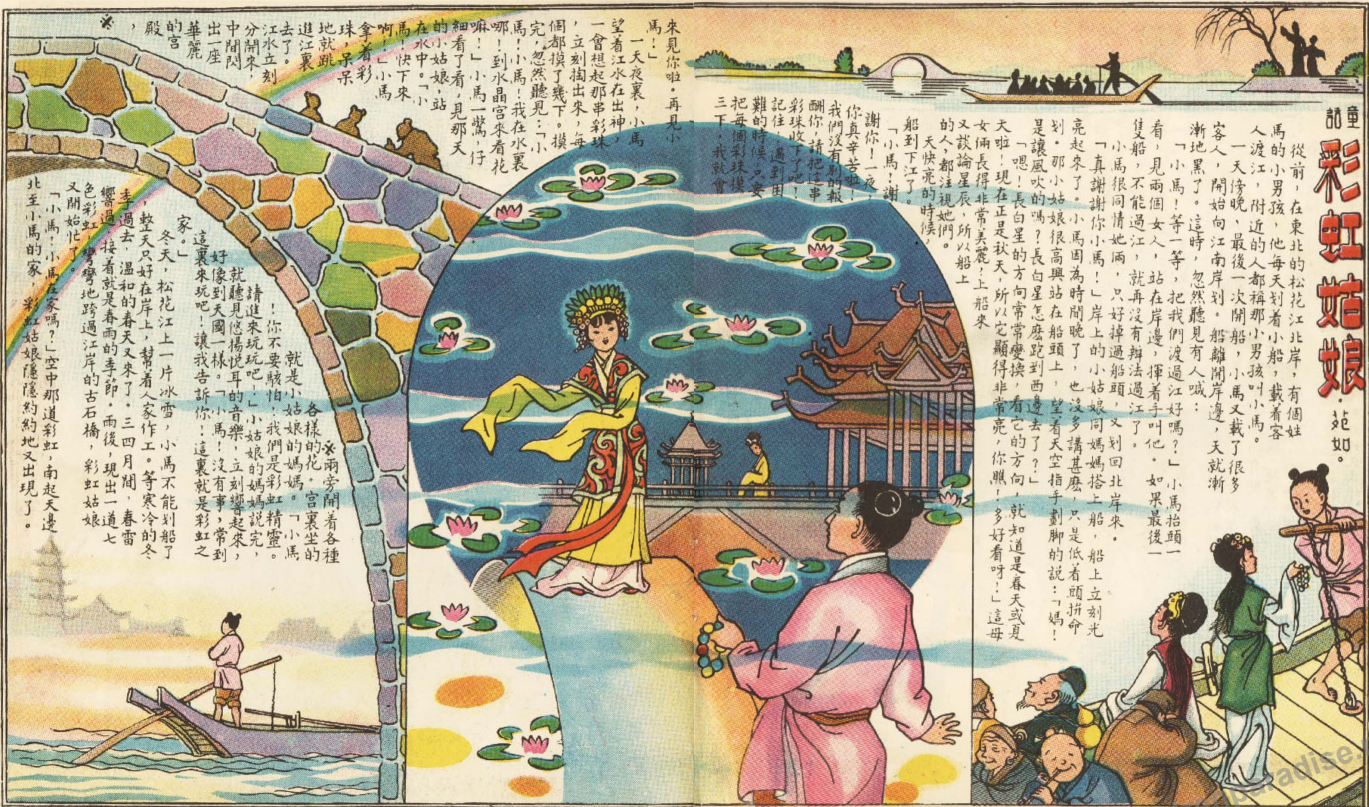 童話
彩虹姑娘
·苑如。
從前，在東北的松花江北岸，有個姓
馬的小男孩，他每天划着小船，載着客
人渡江，附近的人都稱那小男孩叫小馬。
一天傍晚，最後一次開船，小馬又載了很多
客人，開始向江南岸划。船離開岸邊，天就漸
漸地黑了。這時，忽然聽見有人喊：
「小馬！等一等，把我們渡過江好嗎？」小馬抬頭一
看，見兩個女人，站在岸邊，揮着手叫他。如果最後一
隻船，不能過江，就再沒有辦法過江了。
小馬很同情她倆，只好掉過船頭，又划回北岸來。
「真謝謝你小馬！」岸上的小姑娘同媽媽搭上船，船上立刻光
亮起來了。小馬因為時間晚了，也沒多講甚麽，只是低着頭拚命
划。那小姑娘很高興站在船頭上，望着天空指手劃脚的說：「媽！
是讓風吹的嗎？長白星怎麽跑到西邊去了？」
「嗯！長白星的方向常常變換，看它的方向，就知道是春天或夏
天啦！現在正是秋天，所以它顯得非常亮，你瞧！多好看呀！」這母
女倆長得非常美麗！上船來
又談論星辰，所以船上
的人，都注視她們。
天快亮的時候，
船到下江了。
「小馬！謝
謝你！一夜，
你真辛苦啦！
我們沒有別的報
酬你，請把這串
彩珠收了吧！
記住！遇到困
難的時候，只要
把每個彩珠摸
三下，我就會
來見你啦。再見小
馬！」
一天夜裏，小馬
望着江水在出神，
一會想起那串彩珠
，立刻掏出來，每
個都摸了幾下。摸
完，忽然聽見：「小
馬！小馬！我在水裏
哪！到水晶宮來看花
嘛！」小馬一驚，仔
細看了看，見那天
的小姑娘，站
在水中。「小
馬！快下來
啊！」小馬
拿着彩
珠，呆呆
地就跳
進江裏
去了。
江水立刻
分開來！
中間閃
出一座
華麗
的宮
殿
，
※
※兩旁開着各種
各樣的花，宮裏坐的
就是小姑娘的媽媽。「小馬
！你不要駭怕！我們是彩虹精靈。
請進來玩玩吧！」小姑娘的媽媽說完，
就聽見悠揚悅耳的音樂，立刻響起來，
好像到天國一樣。「小馬！沒有事，常到
這裏來玩吧！讓我告訴你！這裏就是彩虹之
家。」
冬天，松花江上一片冰雪，小馬不能划船了
，整天只好在岸上，幫着人家作工。等寒冷的冬
季過去，溫和的春天又來了。三四月間，春雷
響過，接着就是春雨的季節，雨後，現出一道七
色彩虹，彎彎地跨過江岸的古石橋，彩虹姑娘
又開始忙了。
「小馬！小馬在家嗎？」空中那道彩虹，南起天邊
北至小馬的家，彩虹姑娘隱隱約約地又出現了。